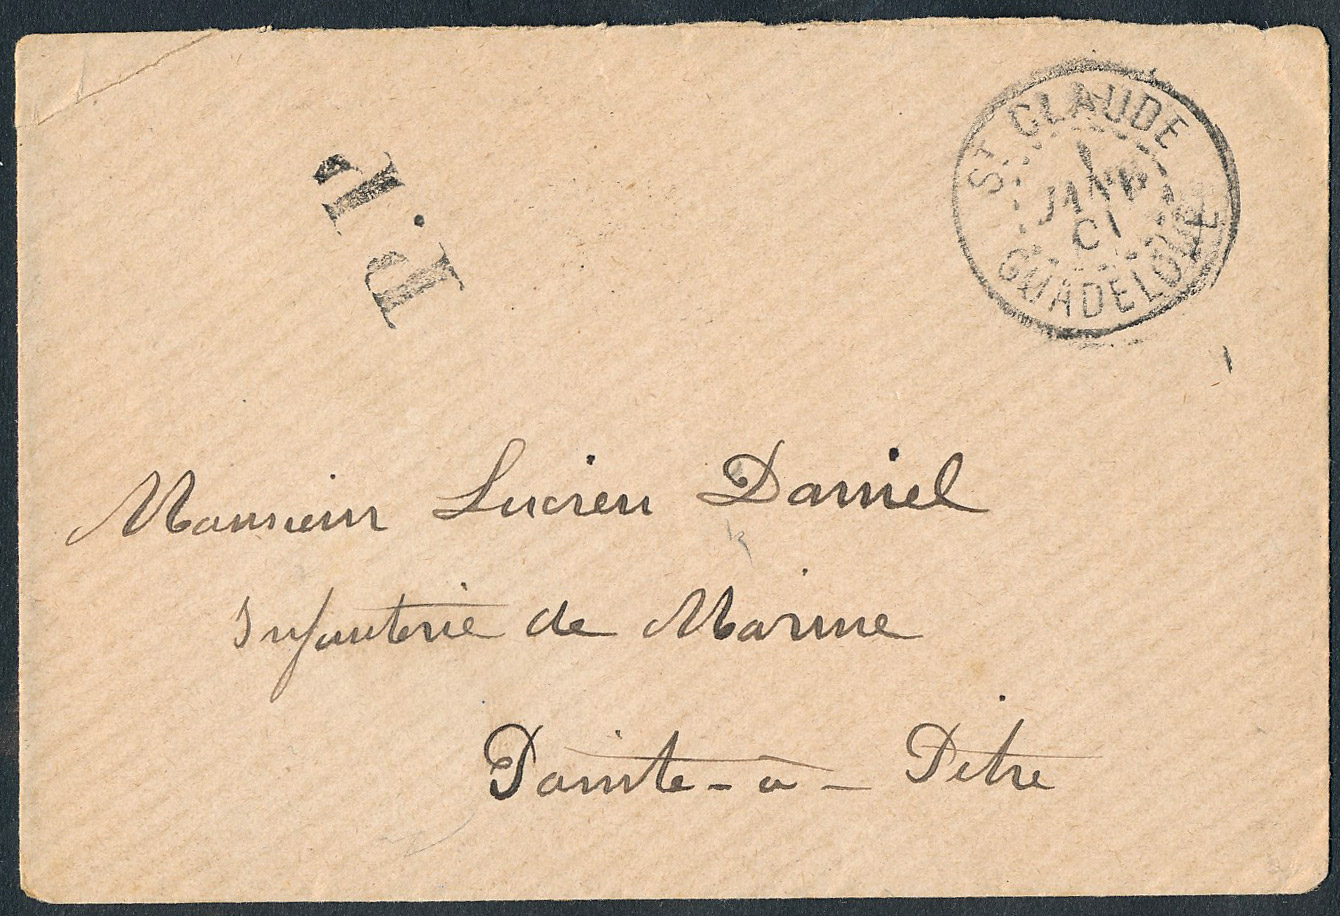 P.P.
ST CLAUDE
1
JANV
01
GUADELOUPE
Monsieur Lucien Daniel
Infanterie de Marine
Pointe-à-Pitre